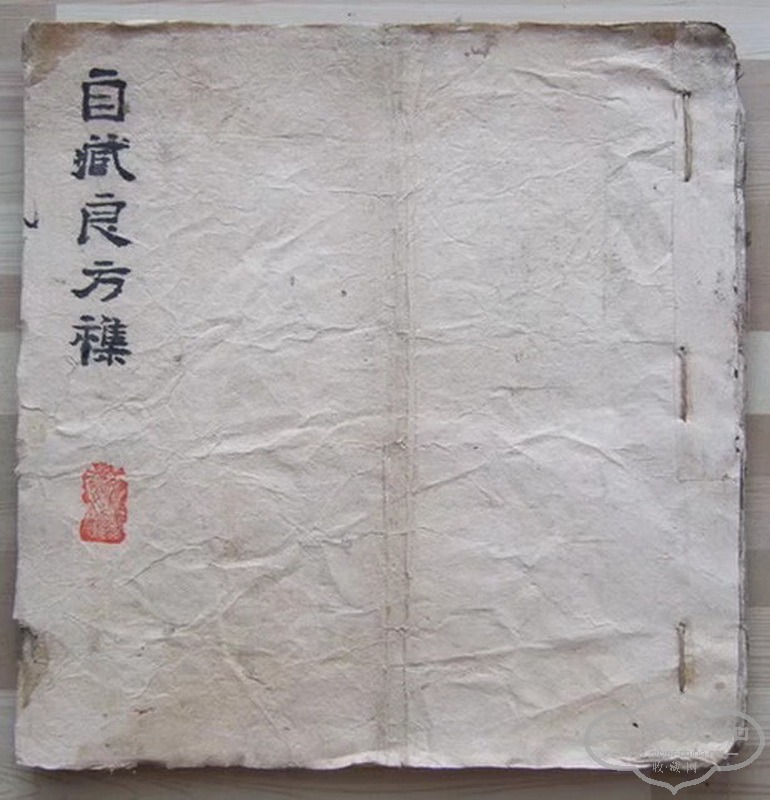 自藏良方襍
收·藏·网